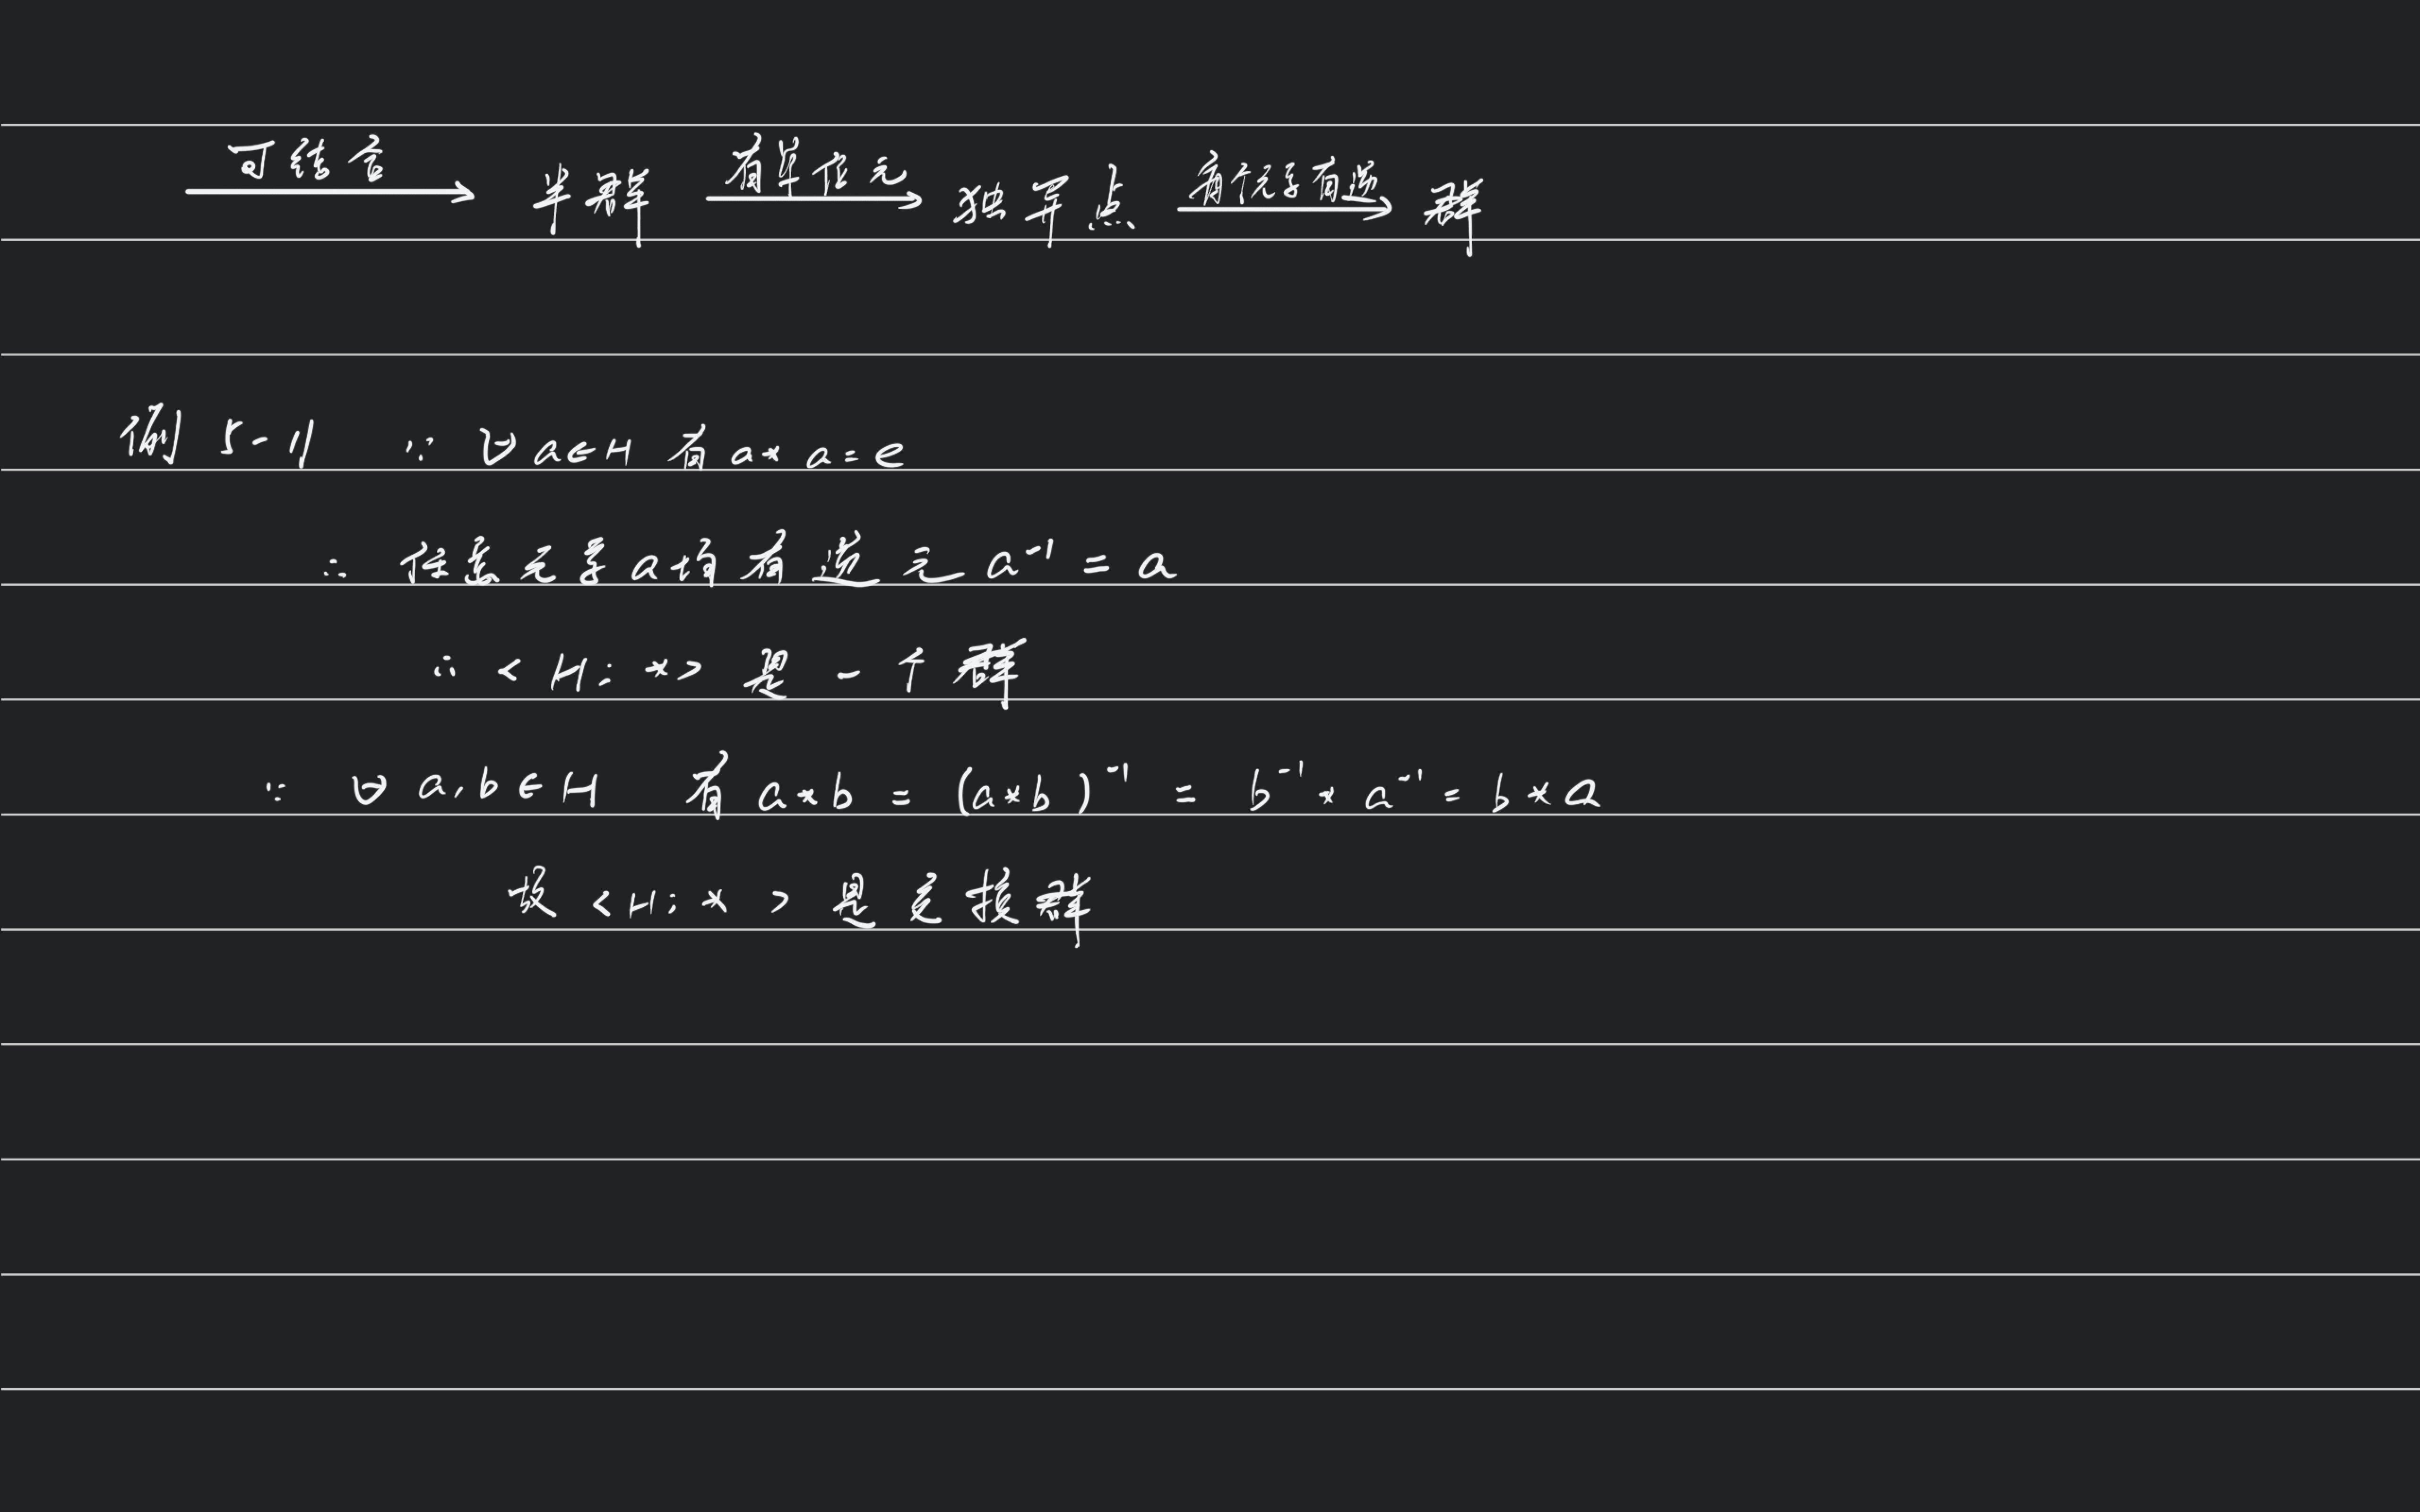 可结合 半群 有单位元 独异点 有优素有逆 群
例5-11 ∵ ∀a∈H 有 a*a=e
∴ 任意元素a均有逆元 a⁻¹ = a
∴ <H;*> 是一个群
∵ ∀a,b∈H 有 a*b = (a*b)⁻¹ = b⁻¹*a⁻¹ = b*a
故 <H;*> 是交换群